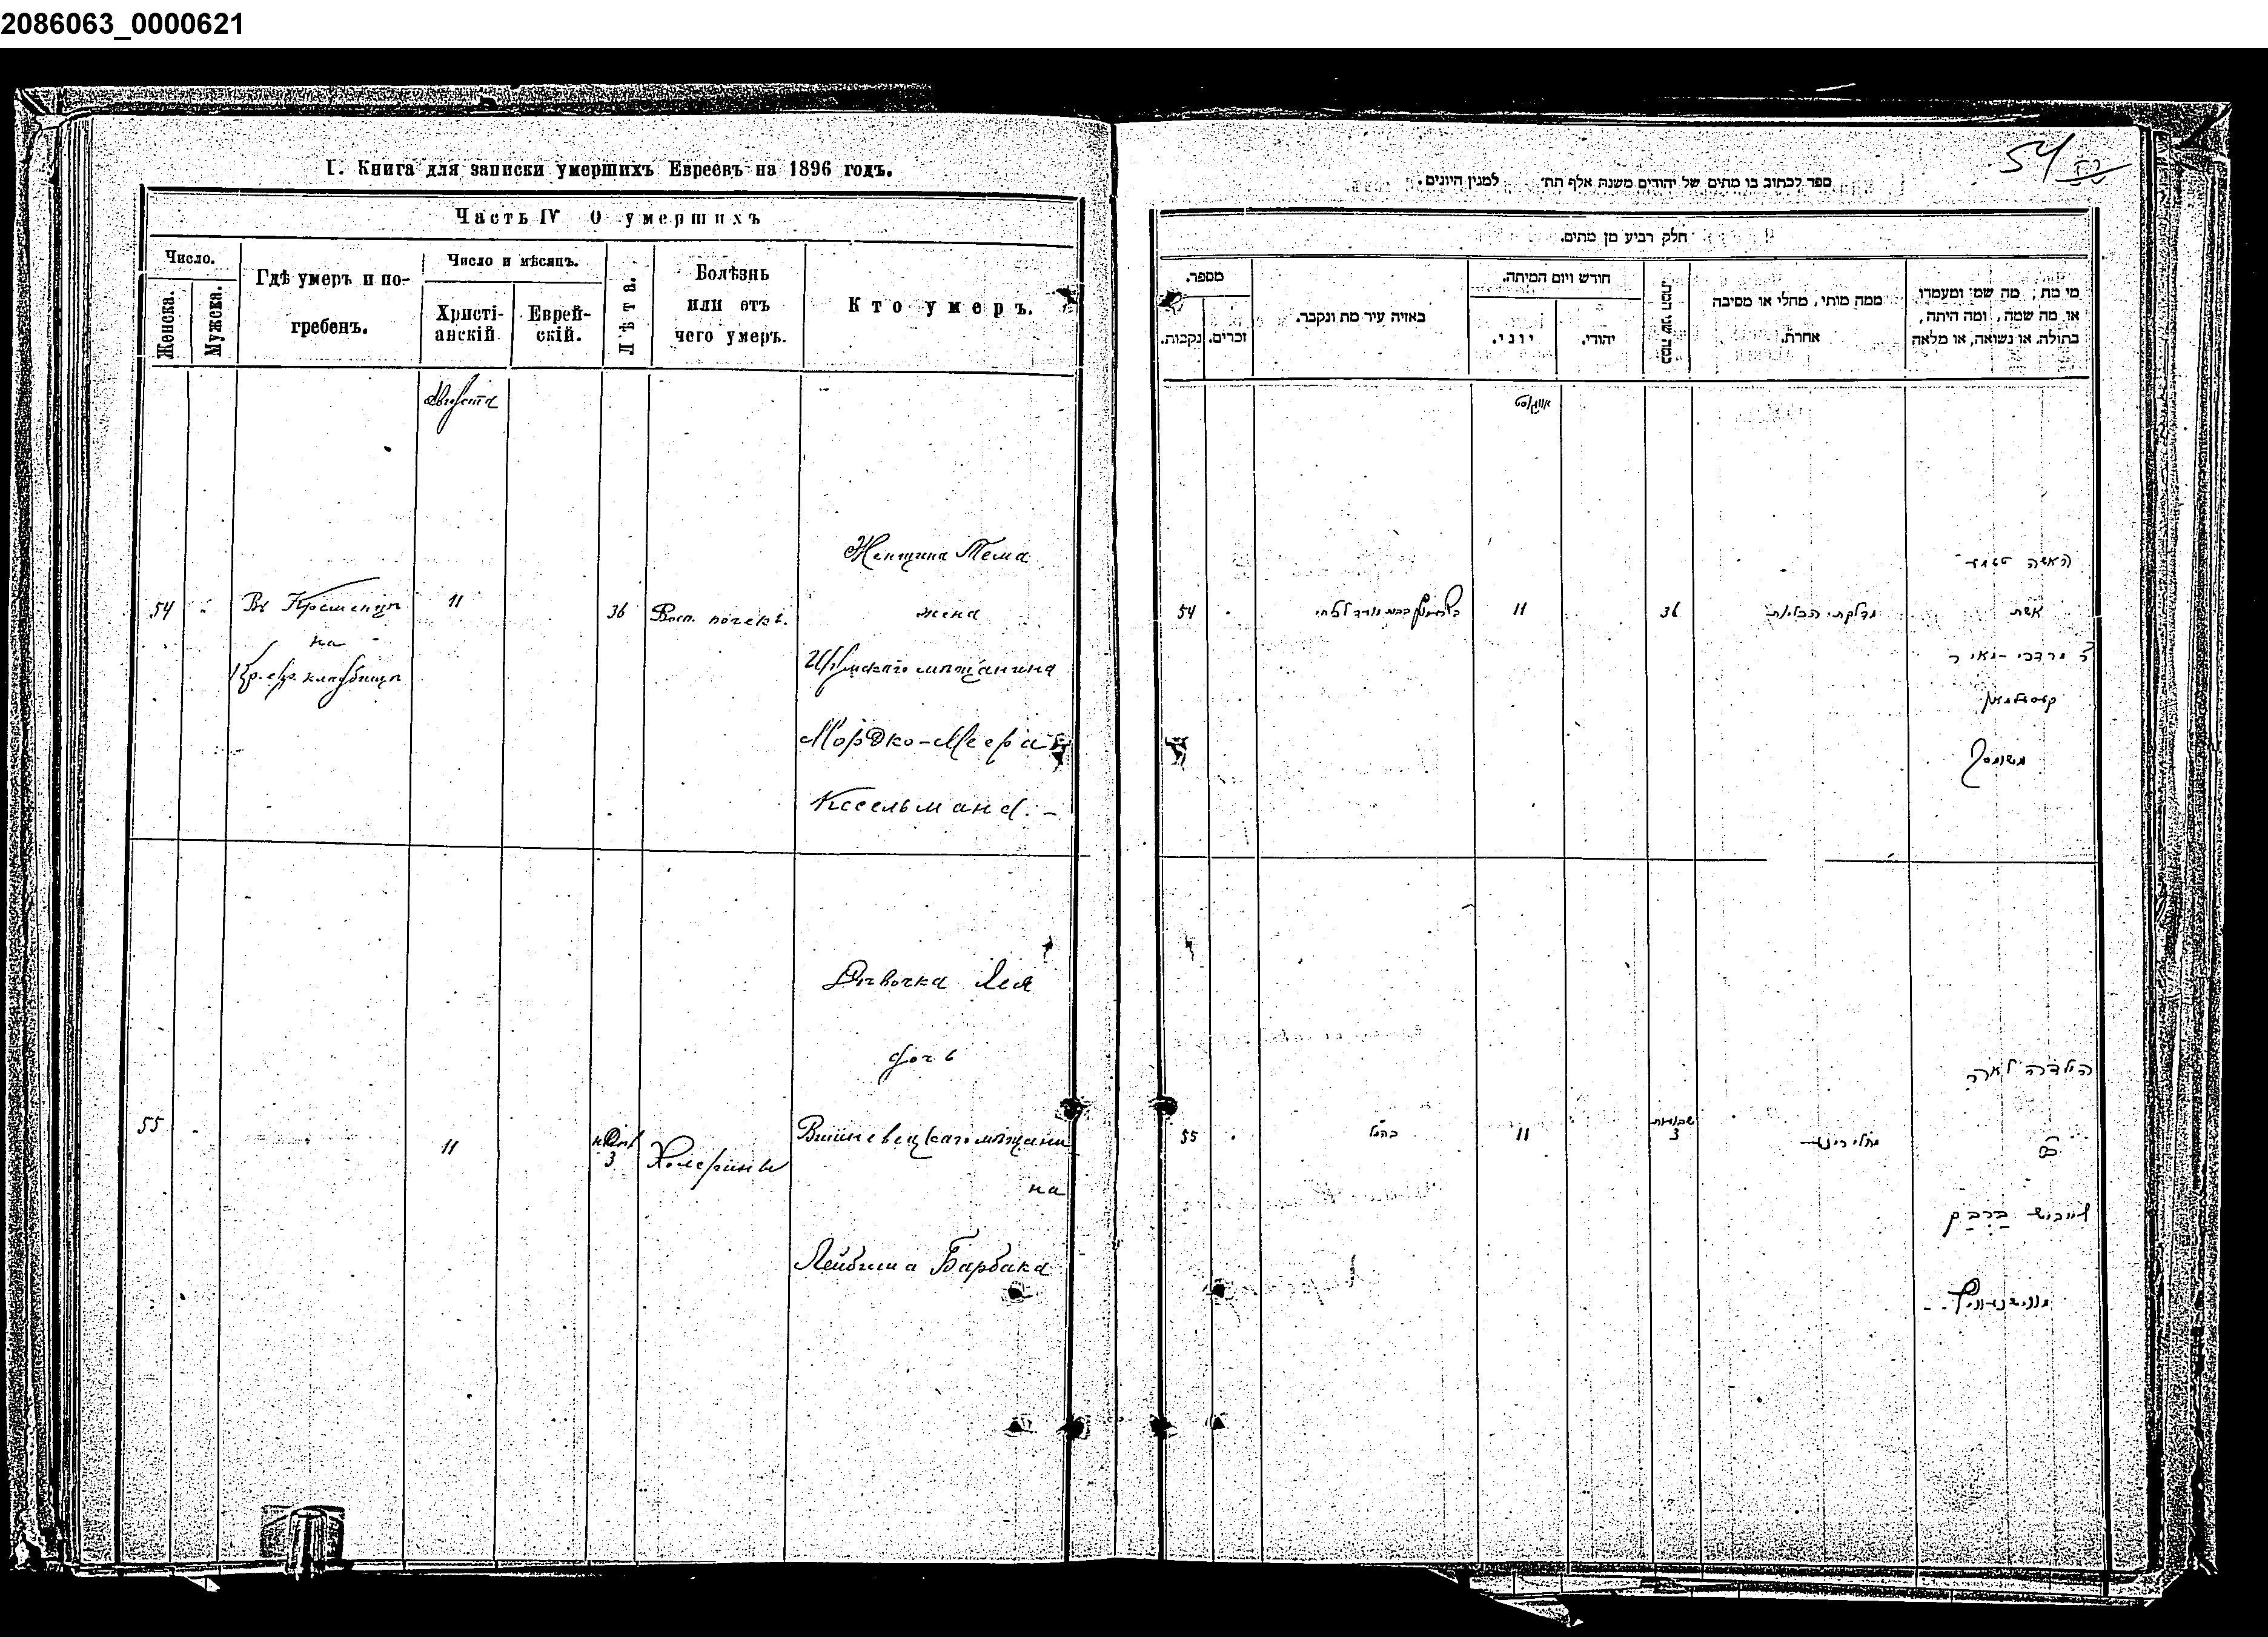 2086063_0000621
I. Книга для записки умершихъ Евреевъ на 1896 годъ.
Часть IV О умершихъ
Число.
Женска.
Мужска.
Гдѣ умеръ и по-
гребенъ.
Число и мѣсяцъ.
Христі-
анскій
Еврей-
скій.
Лѣта.
Болѣзнь
или отъ
чего умеръ.
Кто умеръ.
Августа
54
Въ Кременцѣ
на
Кр. евр. кладбищѣ
11
36
Восп. почекъ.
Женщина Тема
жена
мѣщанина
Мордко-Меера
Кесельмана. -
55
11
3
Холерины
Дѣвочка Лея
дочь
Вишневецкаго мѣщани
на
Лейбиша Барбака
54
ספר לכתוב בו מתים של יהודים משנת אלף תת׳ למנין היונים.
חלק רביע מן מתים.
מספר.
נקבות.
זכרים.
באיזה עיר מת ונקבר.
חודש ויום המיתה.
יוני.
יהודי.
כמה שני המת.
ממה מותו, מחלי או מסיבה
אחרת.
מי מת, מה שמו ומעמדו
או מה שמה, ומה היתה,
בתולה, או נשואה, או מלאה
אווגוסט
54
11
36
מדלקתי הכליות
האשה
אשת
ר מרדכי מאיר
קעסעלמאן
55
11
שבועות
3
הילדה לאה
בת
לייביש